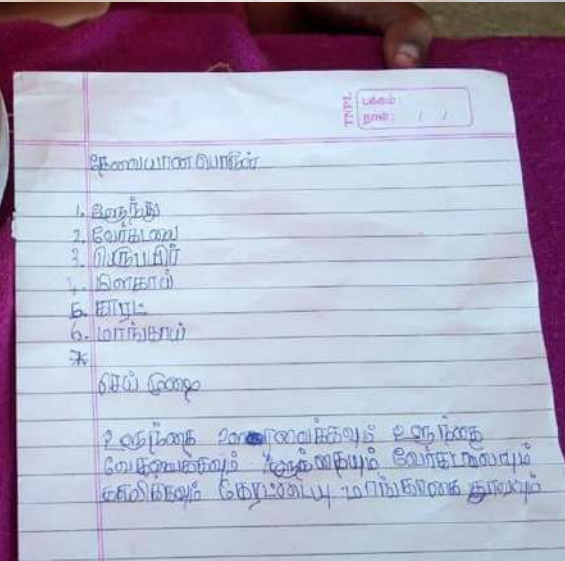 TNPL
பக்கம்:
நாள்: / /
தேவையான பொருள்
1. உளுந்து
2. வேர்கடலை
3. பெருபயிர்
4. மிளகாய்
5. காரட்
6. மாங்காய்
*
செய் முறை
உளுந்தை ஊறவைக்கவும் உளுந்தை
வேகவைக்கவும் உளுந்தையும் வேர்கடலையும்
கலக்கவும் கேரட்டையு மாங்காகை துருவவும்